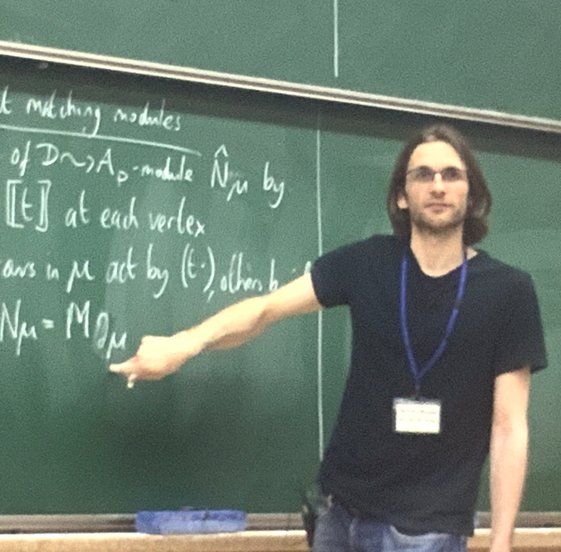 matching modules
of D⤳A_D-module N̂_μ by
⟦t⟧ at each vertex
in μ act by (t·), others
N_μ = M_∂μ